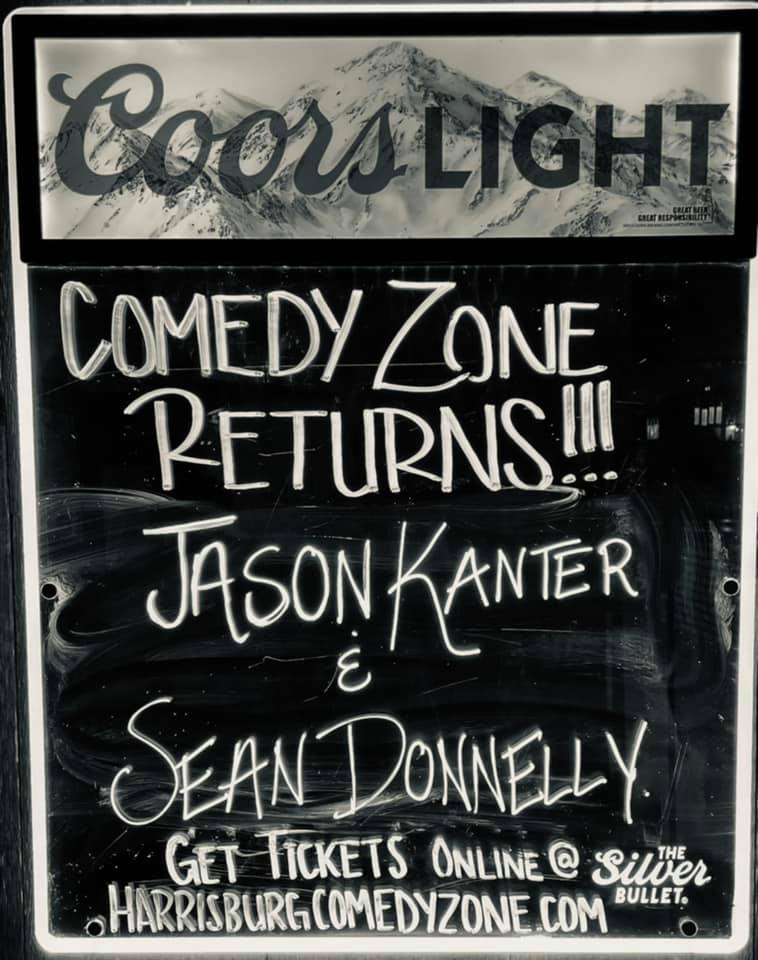 Coors LIGHT
GREAT BEER
GREAT RESPONSIBILITY
COMEDY ZONE
RETURNS!!!
JASON KANTER
&
SEAN DONNELLY.
GET TICKETS ONLINE @
HARRISBURGCOMEDYZONE.COM
THE
Silver
BULLET.